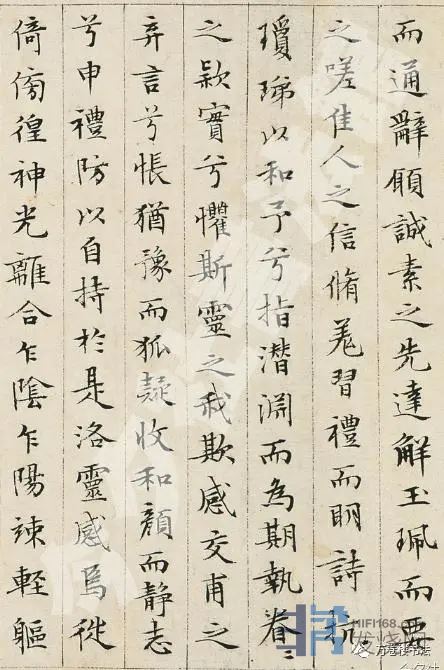 而通辭願誠素之先達解玉珮而要
之嗟佳人之信脩羗習禮而明詩抗
瓊珶以和予兮指潛淵而為期執眷〻
之款實兮懼斯靈之我欺感交甫之
弃言兮悵猶豫而狐疑收和顔而静志
兮申禮防以自持於是洛靈感焉徙
倚傍徨神光離合乍陰乍陽竦軽軀
HIFI168.com
发烧网